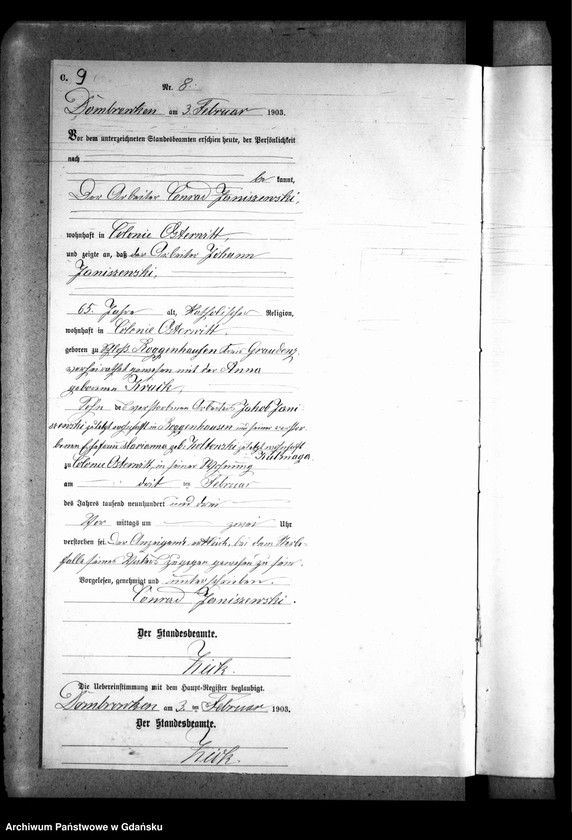 C. 9
Nr. 8.
Dombrowken am 3. Februar 1903.
Vor dem unterzeichneten Standesbeamten erschien heute, der Persönlichkeit
nach
be kannt,
Der Arbeiter Conrad Janiszewski,
wohnhaft in Colonie Osterwitt,
und zeigte an, daß der Arbeiter Johann
Janiszewski,
65 Jahre alt, katholischer Religion,
wohnhaft in Colonie Osterwitt
geboren zu Schloß Roggenhausen Kreis Graudenz,
verheirathet gewesen mit der Anna
geborenen Kruck,
Sohn des verstorbenen Arbeiters Jakob Jani
szewski zuletzt wohnhaft in Roggenhausen und seiner verstor
benen Ehefrau Marianna geb. zuletzt wohnhaft
zu Colonie Osterwitt, in seiner Wohnung
am drei ten Februar
des Jahres tausend neunhundert und drei
Vor mittags um zwei Uhr
verstorben sei. Der Anzeigende erklärt, bei dem Sterbe-
falle seines Vaters zugegen gewesen zu sein.
Vorgelesen, genehmigt und unterschrieben.
Conrad Janiszewski.
Der Standesbeamte.
Die Uebereinstimmung mit dem Haupt-Register beglaubigt.
Dombrowken am 3. ten Februar 1903.
Der Standesbeamte.
Archiwum Państwowe w Gdańsku